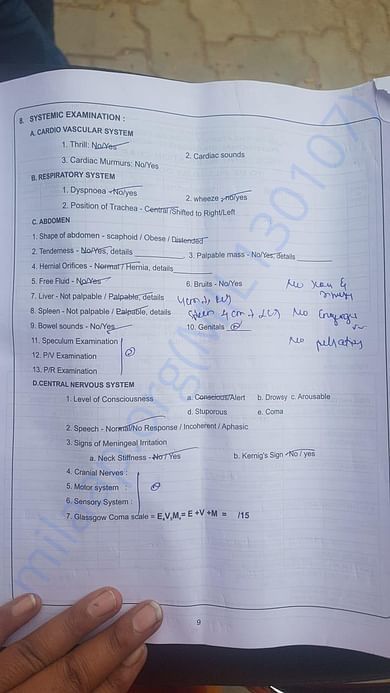 8. SYSTEMIC EXAMINATION :
A. CARDIO VASCULAR SYSTEM
1. Thrill: No/Yes
2. Cardiac sounds
3. Cardiac Murmurs: No/Yes
B. RESPIRATORY SYSTEM
1. Dyspnoea - No/yes
2. wheeze - no/yes
2. Position of Trachea - Central /Shifted to Right/Left
C. ABDOMEN
1. Shape of abdomen - scaphoid / Obese / Distended
2. Tenderness - No/Yes, details
3. Palpable mass - No/Yes, details
4. Hernial Orifices - Normal / Hernia, details
5. Free Fluid - No/Yes
6. Bruits - No/Yes
7. Liver - Not palpable / Palpable, details 4cm
8. Spleen - Not palpable / Palpable, details Spleen 4cm No
9. Bowel sounds - No/Yes
10. Genitals
No
11. Speculum Examination
12. P/V Examination
13. P/R Examination
D.CENTRAL NERVOUS SYSTEM
1. Level of Consciousness a. Conscious/Alert b. Drowsy c. Arousable
d. Stuporous e. Coma
2. Speech - Normal/No Response / Incoherent / Aphasic
3. Signs of Meningeal Irritation
a. Neck Stiffness - No / Yes b. Kernig's Sign - No / yes
4. Cranial Nerves :
5. Motor system :
6. Sensory System :
7. Glassgow Coma scale = = E +V +M = /15
9